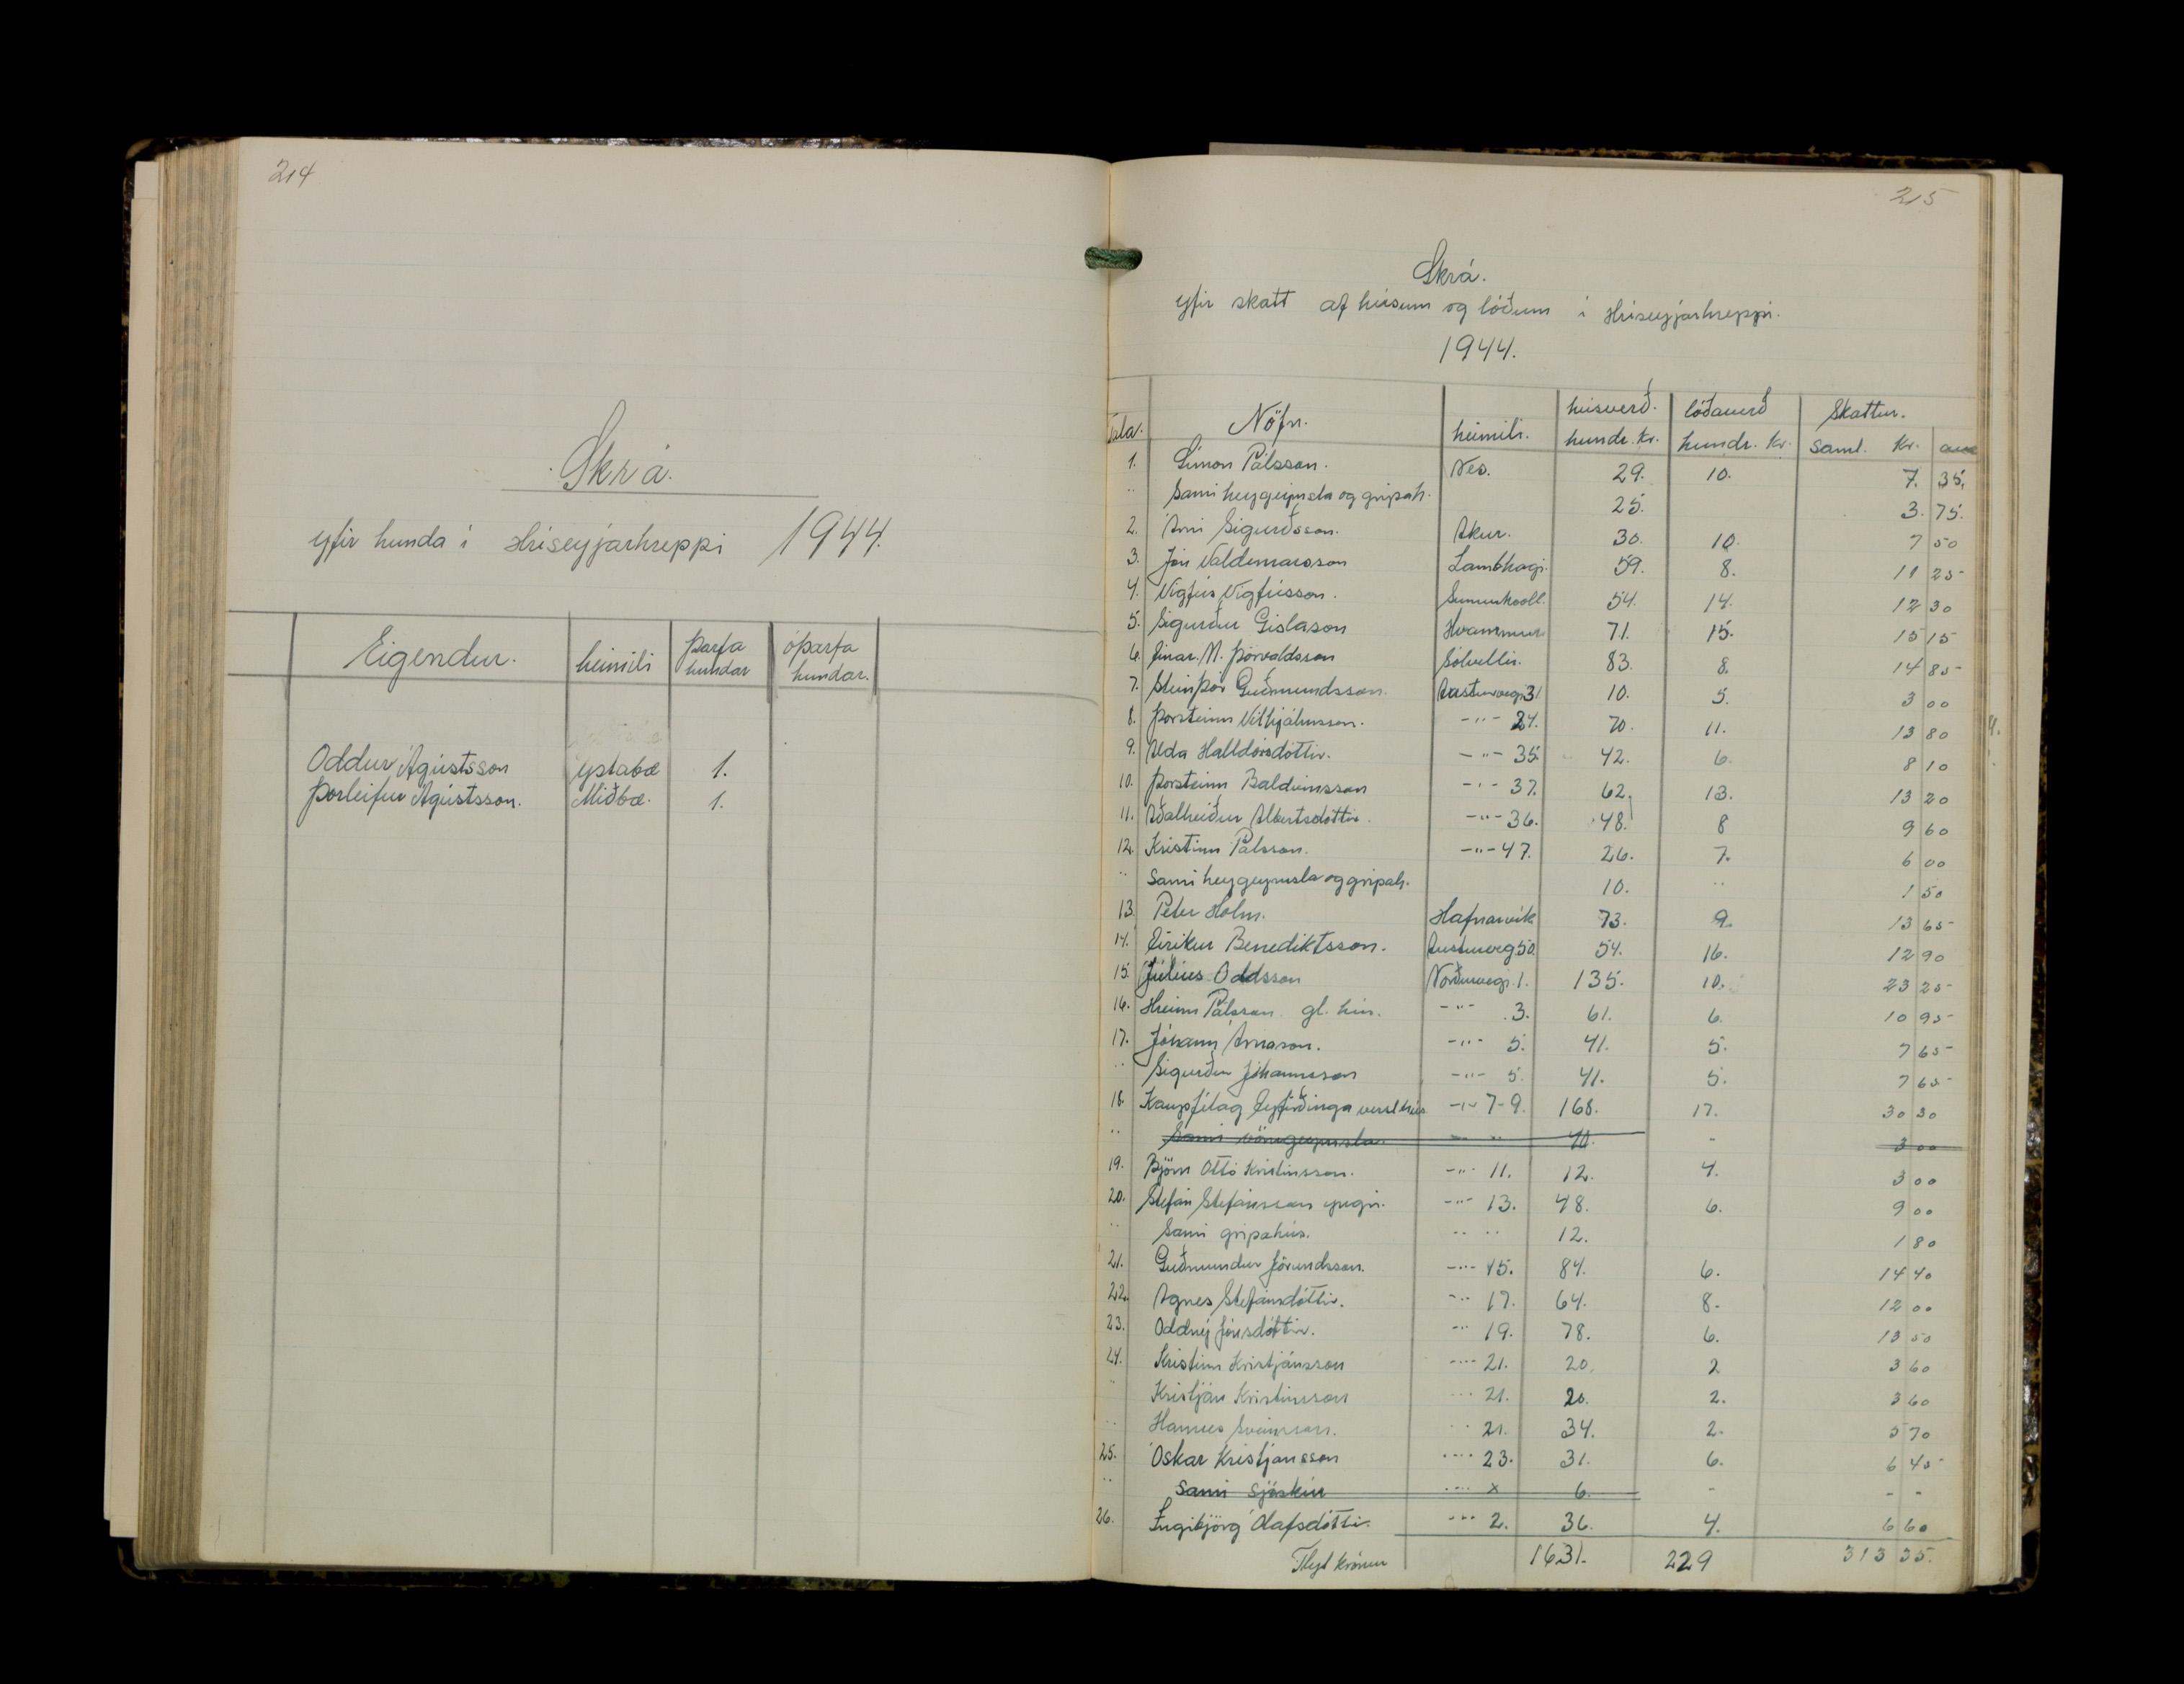 214
Skrá.
yfir hunda í Hríseyjarhreppi 1944.
Eigendur. heimili þarfa hundar óþarfa hundar.
Oddur Ágústsson ystabæ 1.
Þorleifur Ágústsson. Miðbæ. 1.
215
Skrá.
yfir skatt af húsum og lóðum í Hríseyjarhreppi.
1944.
Tala. Nöfn. heimili. húsverð. hundr. kr. lóðaverð hundr. kr. Skattur. saml. kr. aur
1. Símon Pálsson. Nes. 29. 10. 7. 35.
" Sami heygeymsla og gripah. 25. 3. 75.
2. Árni Sigurðsson. Akur. 30. 10. 7 50
3. Jón Valdemarsson Lambhagi. 59. 8. 11 25
4. Vigfús Vigfússon. Sunnuhvoll. 54. 14. 12 30
5. Sigurður Gíslason Hvammur 71. 15. 15 15
6. Einar M. Þorvaldsson Sólvellir. 83. 8. 14 85
7. Steinþór Guðmundsson. Austurvegi 31 10. 5. 3 00
8. Þorsteinn Vilhjálmsson. -"- 24. 70. 11. 13 80
9. Alda Halldórsdóttir. -"- 35. 42. 6. 8 10
10. Þorsteinn Baldvinsson -"- 37. 62. 13. 13 20
11. Aðalheiður Albertsdóttir. -"- 36. 48. 8 9 60
12. Kristinn Pálsson. -"- 47. 26. 7. 6 00
" Sami heygeymsla og gripah. 10. " 1 50
13. Peter Holm. Hafnarvík 73. 9. 13 65
14. Eiríkur Benediktsson. Austurveg 50. 54. 16. 12 90
15. Júlíus Oddsson Norðurvegi 1. 135. 10. 23 25
16. Hreinn Pálsson gl. hús. -"- 3. 61. 6. 10 95
17. Jóhann Árnason. -"- 5. 41. 5. 7 65
" Sigurður Jóhannsson -"- 5. 41. 5. 7 65
18. Kaupfélag Eyfirðinga versl.hús. -"- 7-9. 168. 17. 30 30
" Sami vörugeymsla. -"- " 3 00
19. Björn Ottó Kristinsson. -"- 11. 12. 4. 3 00
20. Stefán Stefánsson yngri. -"- 13. 48. 6. 9 00
" Sami gripahús. " " 12. 1 80
21. Guðmundur Jörundsson. -"- 15. 84. 6. 14 40
22. Agnes Stefánsdóttir. -"- 17. 64. 8. 12 00
23. Oddný Jónsdóttir. -"- 19. 78. 6. 13 50
24. Kristinn Kristjánsson -"- 21. 20. 2 3 60
" Kristján Kristinsson -"- 21. 20. 2. 3 60
" Hannes Sveinsson. " 21. 34. 2. 5 70
25. Óskar Kristjánsson -"- 23. 31. 6. 6 45
" Sami sjóskúr -"- x 6. - - -
26. Ingibjörg Ólafsdóttir. -"- 2. 36. 4. 6 60
Flyt krónur 1631. 229 313 35.